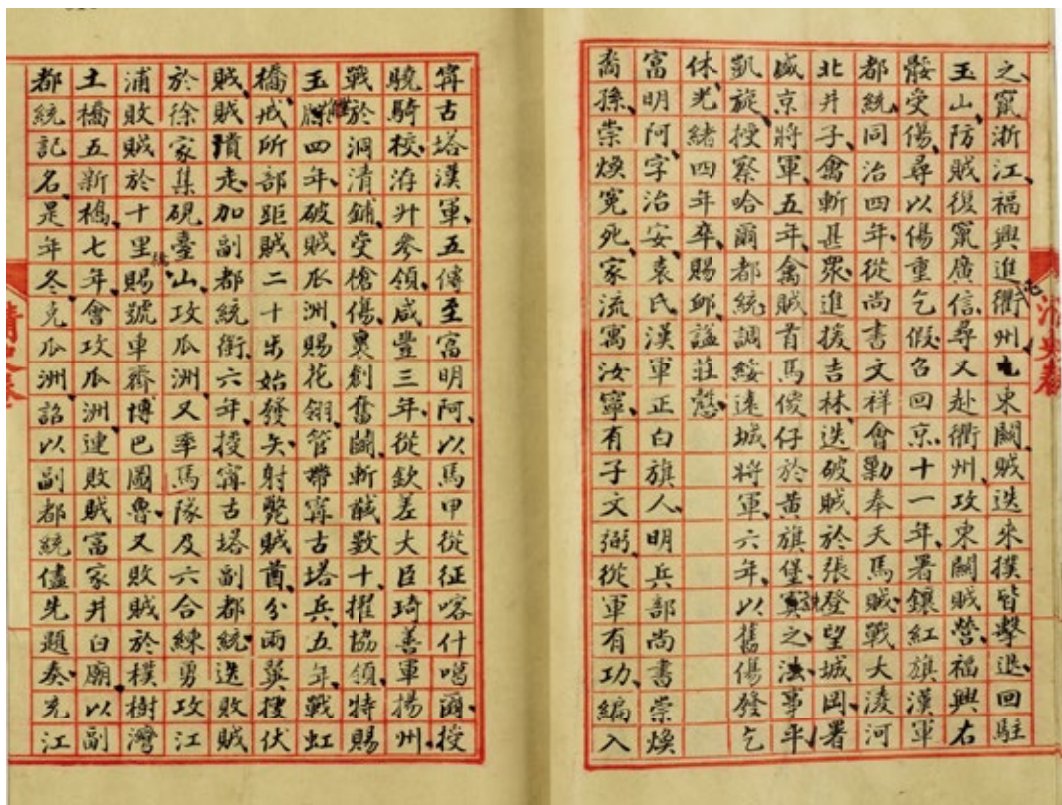 之、竄浙江、福興進衢州、屯東關、賊迭來撲、皆擊退、回駐
玉山、防賊復竄廣信、尋又赴衢州、攻東關賊營、福興右
骽受傷、尋以傷重乞假、召回京、十一年、署鑲紅旗漢軍
都統、同治四年、從尚書文祥會勦奉天馬賊、戰大淩河
北井子、禽斬甚眾、進援吉林、迭破賊於張登望城岡、署
盛京將軍、五年、禽賊首馬傻仔於黃旗堡、寘之法、事平、
凱旋、授察哈爾都統、調綏遠城將軍、六年、以舊傷發乞
休、光緒四年卒、賜卹、謚莊愨、
富明阿、字治安、袁氏、漢軍正白旗人、明兵部尚書崇煥
裔孫、崇煥冤死、家流寓汝寧、有子文弼、從軍有功、編入
寧古塔漢軍、五傳至富明阿、以馬甲從征喀什噶爾、授
驍騎校、洊升參領、咸豐三年、從欽差大臣琦善軍揚州、
戰於洞清鋪、受槍傷、裹創奮鬬、斬馘數十、擢協領、特賜
玉牒、四年、破賊瓜洲、賜花翎、管帶寧古塔兵、五年、戰虹
橋、戒所部距賊二十步始發矢、射斃賊酋、分兩翼搜伏
賊、賊潰走、加副都統銜、六年、授寧古塔副都統、迭敗賊
於徐家集硯臺山、攻瓜洲、又率馬隊及六合練勇攻江
浦、敗賊於十里、賜號車齊博巴圖魯、又敗賊於樸樹灣
土橋五新橋、七年、會攻瓜洲、連敗賊富家井白廟、以副
都統記名、是年冬、克瓜洲、詔以副都統儘先題奏、充江